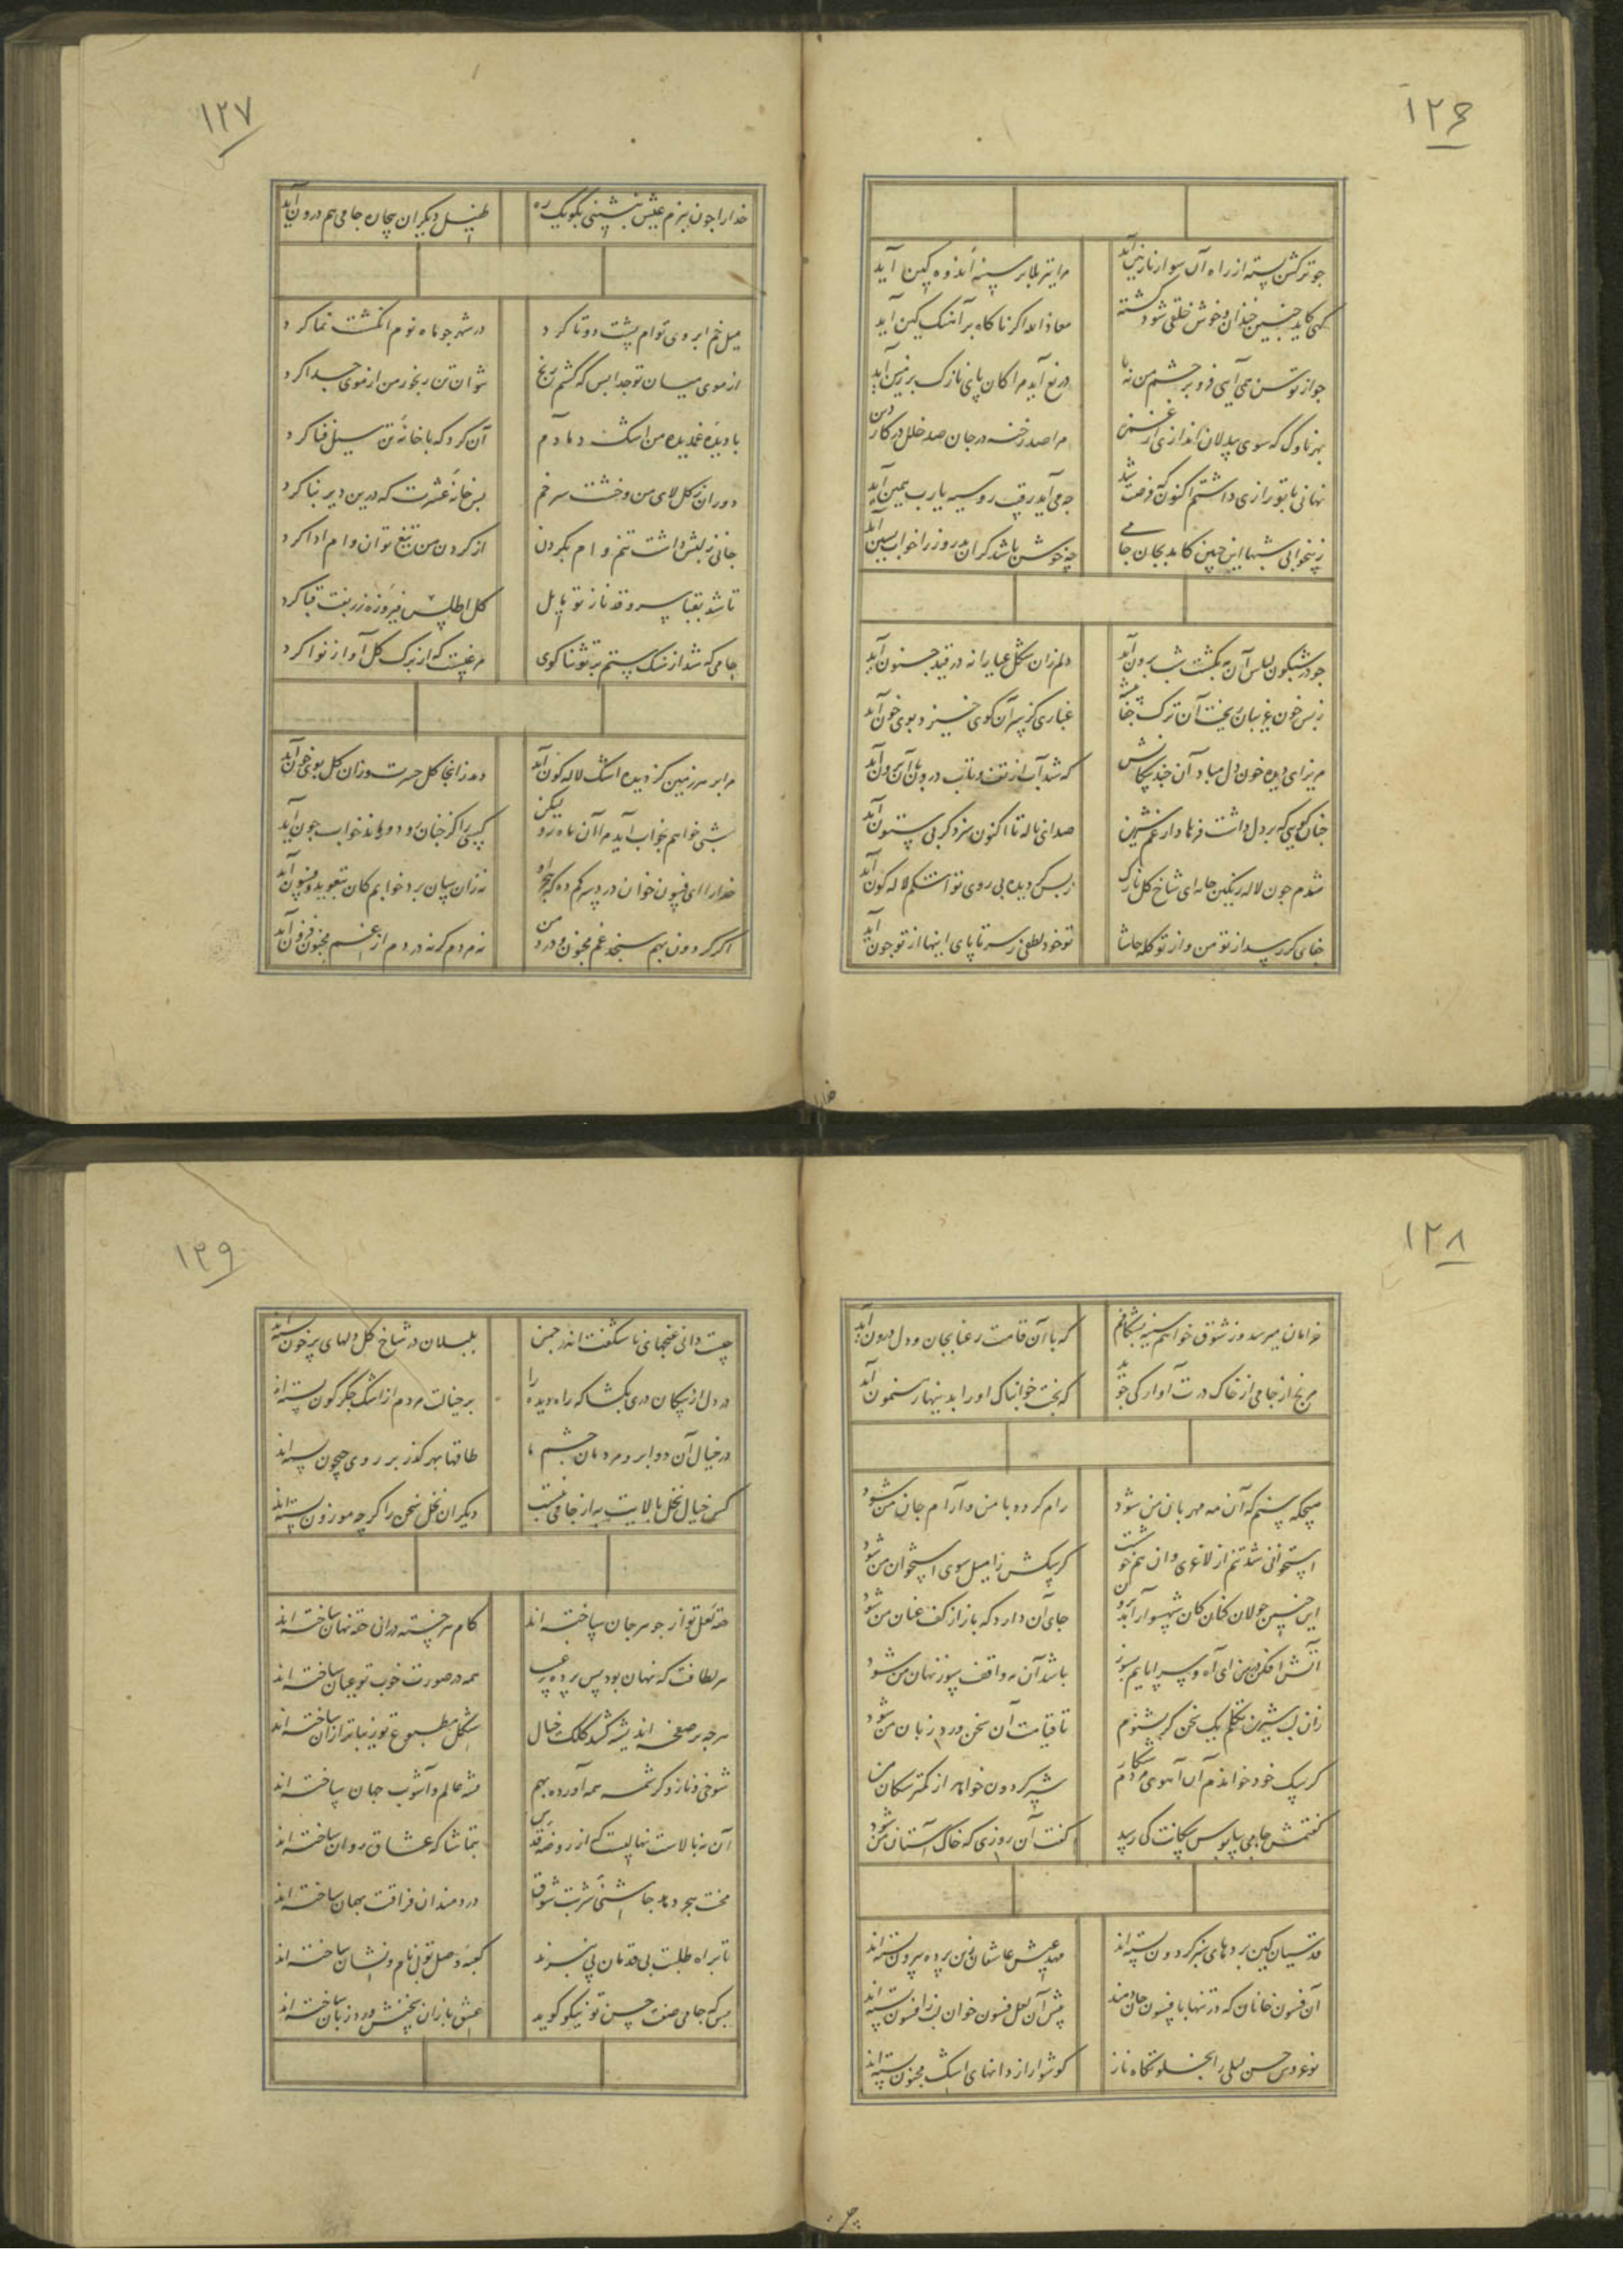 ۱۲۶
چو ترکش بسته از راه آن سوار نازنین آید
مرا تیر بلا بر سینه اندوه کین آید
کسی کاید چنین خندان و خوش خلقی شود کشته
معاذ الله اگر ناگاه بر آهنگ کین آید
چو از توسن همی آیی فرو بر چشم من نه پا
دریغ آید مرا کان پای نازک بر زمین آید
بهر ناوک که سوی بیدلان اندازی از غمزه
مرا صد رخنه در جان صد خلل در کار دین
نهانی با تو رازی داشتم اکنون که فرصت شد
چه می آید رقیب روسیه یارب همین آید
ز بیخوابی شبها این چنین کاید بجان جامی
چه خوش باشد گر آن بدروز را خواب پسین آید
چو در شبگون لباس آن مه بگشت شب برون آید
دلم زان شکل عیارانه در قید جنون آید
ز بس خون غریبان ریخت آن ترک جفا پیشه
غباری کز سر آن کوی خیزد بوی خون آید
مریز ای دیده خون دل مباد آن چند پیکانش
که شد آب از تف و تاب درون با آن برون آید
چنان کوهی که بر دل داشت فرهاد از غم شیرین
صدای ناله تا اکنون سزد گر بی ستون آید
شدم چون لاله رنگین جامه ای شاخ گل نازک
ز بس کز دیده بی روی تو اشکم لاله گون آید
جفای گر رسد از تو من و از تو گله حاشا
تو خود لطفی ز سر تا پای اینها از تو چون آید
خدارا
۱۲۷
خدارا چون ببزم عیش بنشینی بگو یک ره
طفیل دیگران بیچاره جامی هم درون آید
میل خم ابروی توام پشت دوتا کرد
در شهر چو ماه نوم انگشت نما کرد
از موی میان تو جدا بس که کشم رنج
نتوان تن رنجور من از موی جدا کرد
با دیده غمدیده من اشک دمادم
آن کرد که با خانه تن سیل فنا کرد
دوران ز گل لای من و خشت سر خم
بس خانه عشرت که درین دیر بنا کرد
جانی ز لبش داشت تنم وام بگردن
از گردن من تیغ تو آن وام ادا کرد
تا شد بقبا سرو قد ناز تو مایل
گل اطلس فیروزه زربفت قبا کرد
جامی که شد از سنگ ستم بر تو ثناگوی
مرغیست که از برگ گل آواز نوا کرد
مرا بر هر زمین کز دیده اشک لاله گون آید
دمد زانجا گل حسرت وزان گل بوی خون آید
شبی خواهم بخواب آید مرا آن ماه رو لیکن
کسی را کز چنان رو دور ماند خواب چون آید
خدارا ای فسون خوان درد سر کم ده که هجر او
نه زان سان برد خوابم کان بتعویذ و فسون آید
اگر گردون بهم سنجد غم مجنون و درد من
نه مردم گر نه دردم از غم مجنون فزون آید
۱۲۸
خرامان میرسد وز شوق خواهم سینه بشکافم
که با آن قامت رعنا بجان و دل درون آید
مرنج از جامی از خاک درت آواره کی جوید
که بخت خوابناک او را بدینها رهنمون آید
هیچگه بینم که آن مه مهربان من شود
رام گردد با من و آرام جان من شود
استخوانی شد تنم از لاغری وان هم خوشست
گر سگش را میل سوی استخوان من شود
این چنین جولان کنان کان شهسوار آید برون
جای آن دارد که باز از کف عنان من شود
آتش افکن در من ای آه و سراپایم بسوز
باشد آن مه واقف سوز نهان من شود
زان لب شیرین تکلم یک سخن گر بشنوم
تا قیامت آن سخن ورد زبان من شود
گر سگ خود خواندم آن آهوی مردم شکار
شیر گردون خواهد از کمتر سگان من
گفتمش جامی بپابوس سگانت کی رسد
گفت آن روزی که خاک آستان من شود
قدسیان کین پردهای سبز گردون بسته اند
مهد عیش عاشقان زین پرده بیرون بسته اند
آن فسون خانان که در تنها بافسون جان دمند
پیش آن لعل فسون خوان لب ز افسون بسته اند
نوعروس حسن لیلی را بجلوه گاه ناز
گوشوار از دانهای اشک مجنون بسته اند
۱۲۹
چیست دانی غنچهای ناشکفته اندر چمن
بلبلان در شاخ گل دلهای پر خون بسته اند
در دل از پیکان دری بگشا که راه دیده را
بر خیالت مردم از اشک جگرگون بسته اند
در خیال آن دو ابرو مردمان چشم ما
طاقها بهر گذر بر روی جیحون بسته اند
کس خیال نخل بالایت به از جامی نبست
دیگران نخل سخن را گرچه موزون بسته اند
حقه لعل تو از جوهر جان ساخته اند
کام هر خسته در آن حقه نهان ساخته اند
هر لطافت که نهان بود پس پرده غیب
همه در صورت خوب تو عیان ساخته اند
هرچه بر صفحه اندیشه کشد کلک خیال
شکل مطبوع تو زیباتر از آن ساخته اند
شوخی و ناز و کرشمه همه آورده بهم
فتنه عالم و آشوب جهان ساخته اند
آن نه بالاست نهالیست که از روضه قدس
بتماشاگه عشاق روان ساخته اند
محنت هجر دهد چاشنی شربت شوق
دردمندان فراقت بهمان ساخته اند
تا براه طلبت بی قدمان پی نبرند
کعبه وصل تو بی نام و نشان ساخته اند
بس که جامی صفت حسن تو نیکو گوید
عشق بازان سخنش ورد زبان ساخته اند